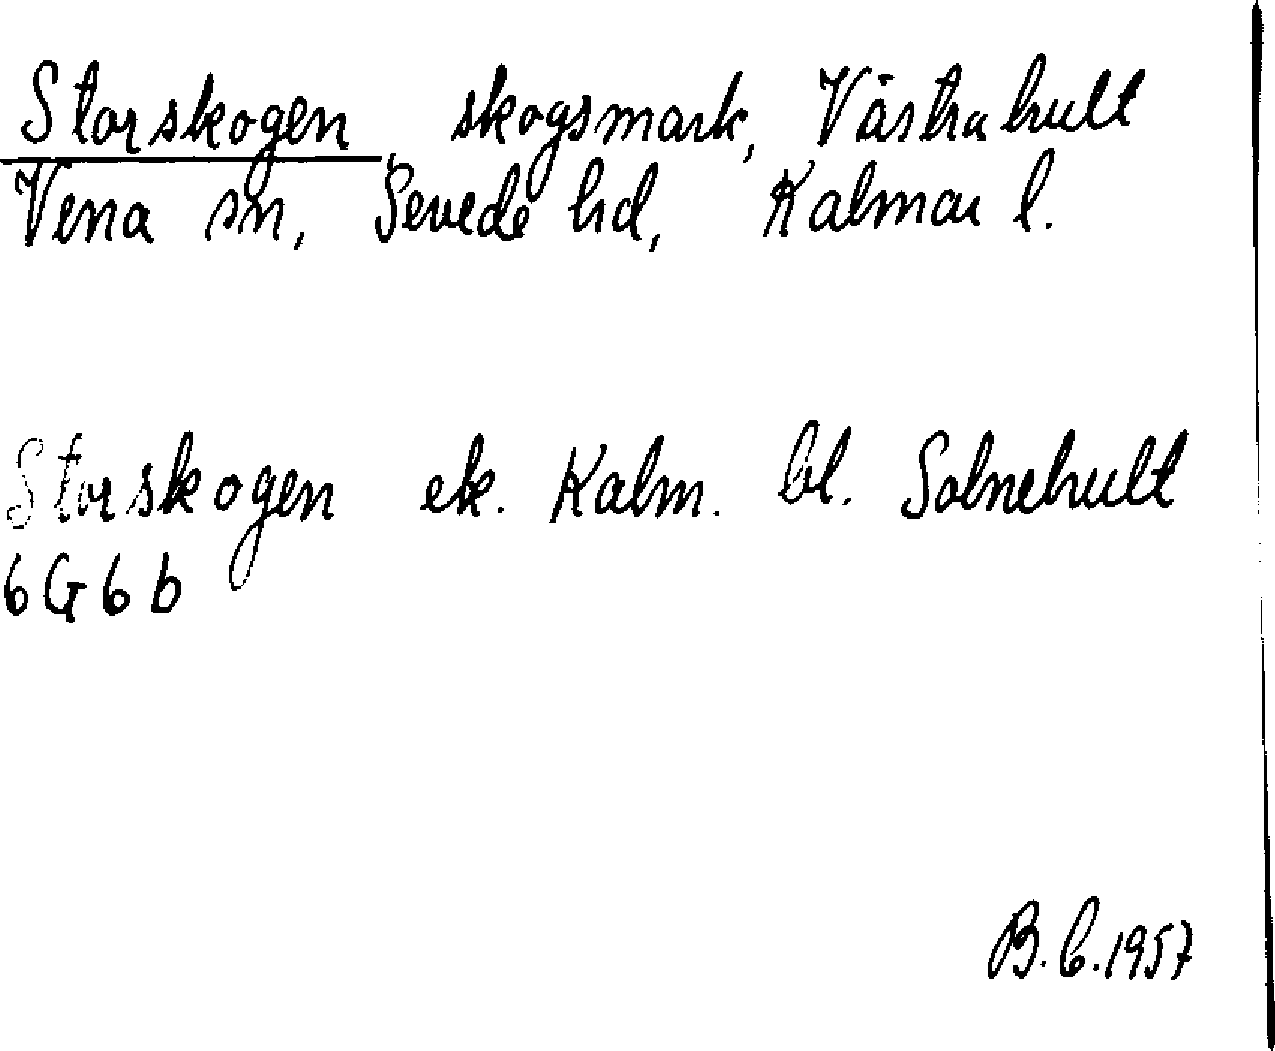 Storskogen, skogsmark, Västrahult
Vena sn, Sevede hd, Kalmar l.
Storskogen ek. Kalm. bl. Solnehult
6G6b
B.C.1957